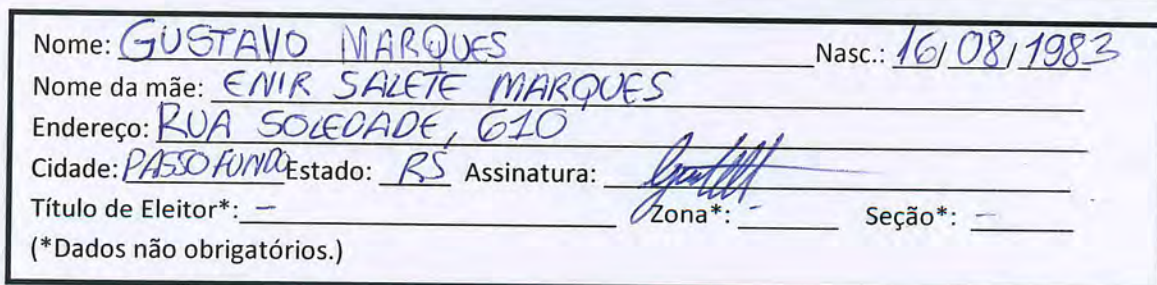 Nome: GUSTAVO MARQUES Nasc.: 16/08/1983
Nome da mãe: ENIR SALETE MARQUES
Endereço: RUA SOLEDADE, 610
Cidade: PASSO FUNDO Estado: RS Assinatura:
Título de Eleitor*: - Zona*: - Seção*: -
(*Dados não obrigatórios.)